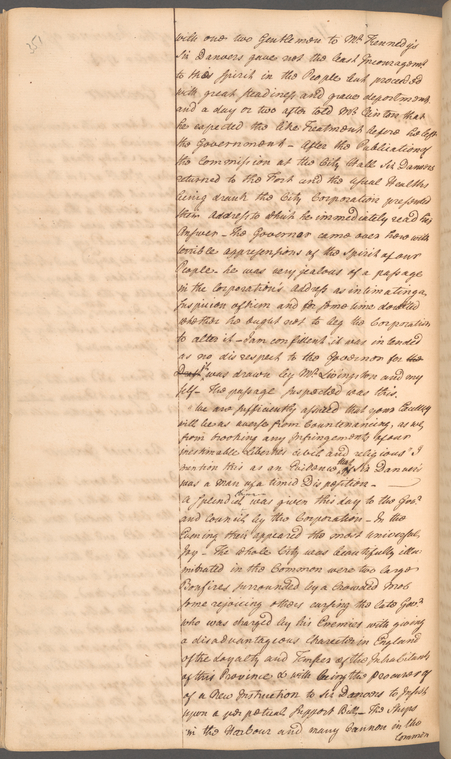 351
with one two Gentlemen to Mr. Kennedy's
Sir Danvers gave not the least Encouragemt
to this Spirit in the People but proceeded
with great steadiness and grave deportment
and a day or two after told Mr. Clinton that
he expected the like Treatment before he left
the Government – After the Publication of
the Commission at the City Hall Sir Danvers
returned to the Fort and the usual Healths
being drank the City Corporation presented
their Address to which he immediately read his
Answer – the Governor came over here with
terrible apprehensions of the Spirit of our
People he was very jealous of a passage
in the Corporations Address as intimating a
Suspicion of him and for some time doubted
whether he ought not to beg the Corporation
to alter it – I am confident it was intended
as no disrespect to the Governor for the
Draft it was drawn by Mr. Livingston and my
self – The passage suspected was this.
"We are sufficiently assured that your Excellcy
will be as averse from Countenancing, as we,
from brooking any Infringements of our
inestimable Liberties civil and religious" I
mention this as an Evidence that Sir Danvers
was a man of a timid Disposition –
A splendid was given this day to the Govr.
and Council by the Corporation – In the
Evening there appeared the most universal
Joy – The whole City was beautifully illu
minated in the Common were two large
Bonfires surrounded by a Crowded Mob
some rejoicing others cursing the late Govr.
who was charged by his Enemies with giving
a disadvantageous Character in England
of the Loyalty and Temper of the Inhabitants
of this Province & with being the Procurer of
of a New Instruction to Sir Danvers to Insist
upon a perpetual Support Bill – The Ships
in the Harbour and many Cannon in the
Common